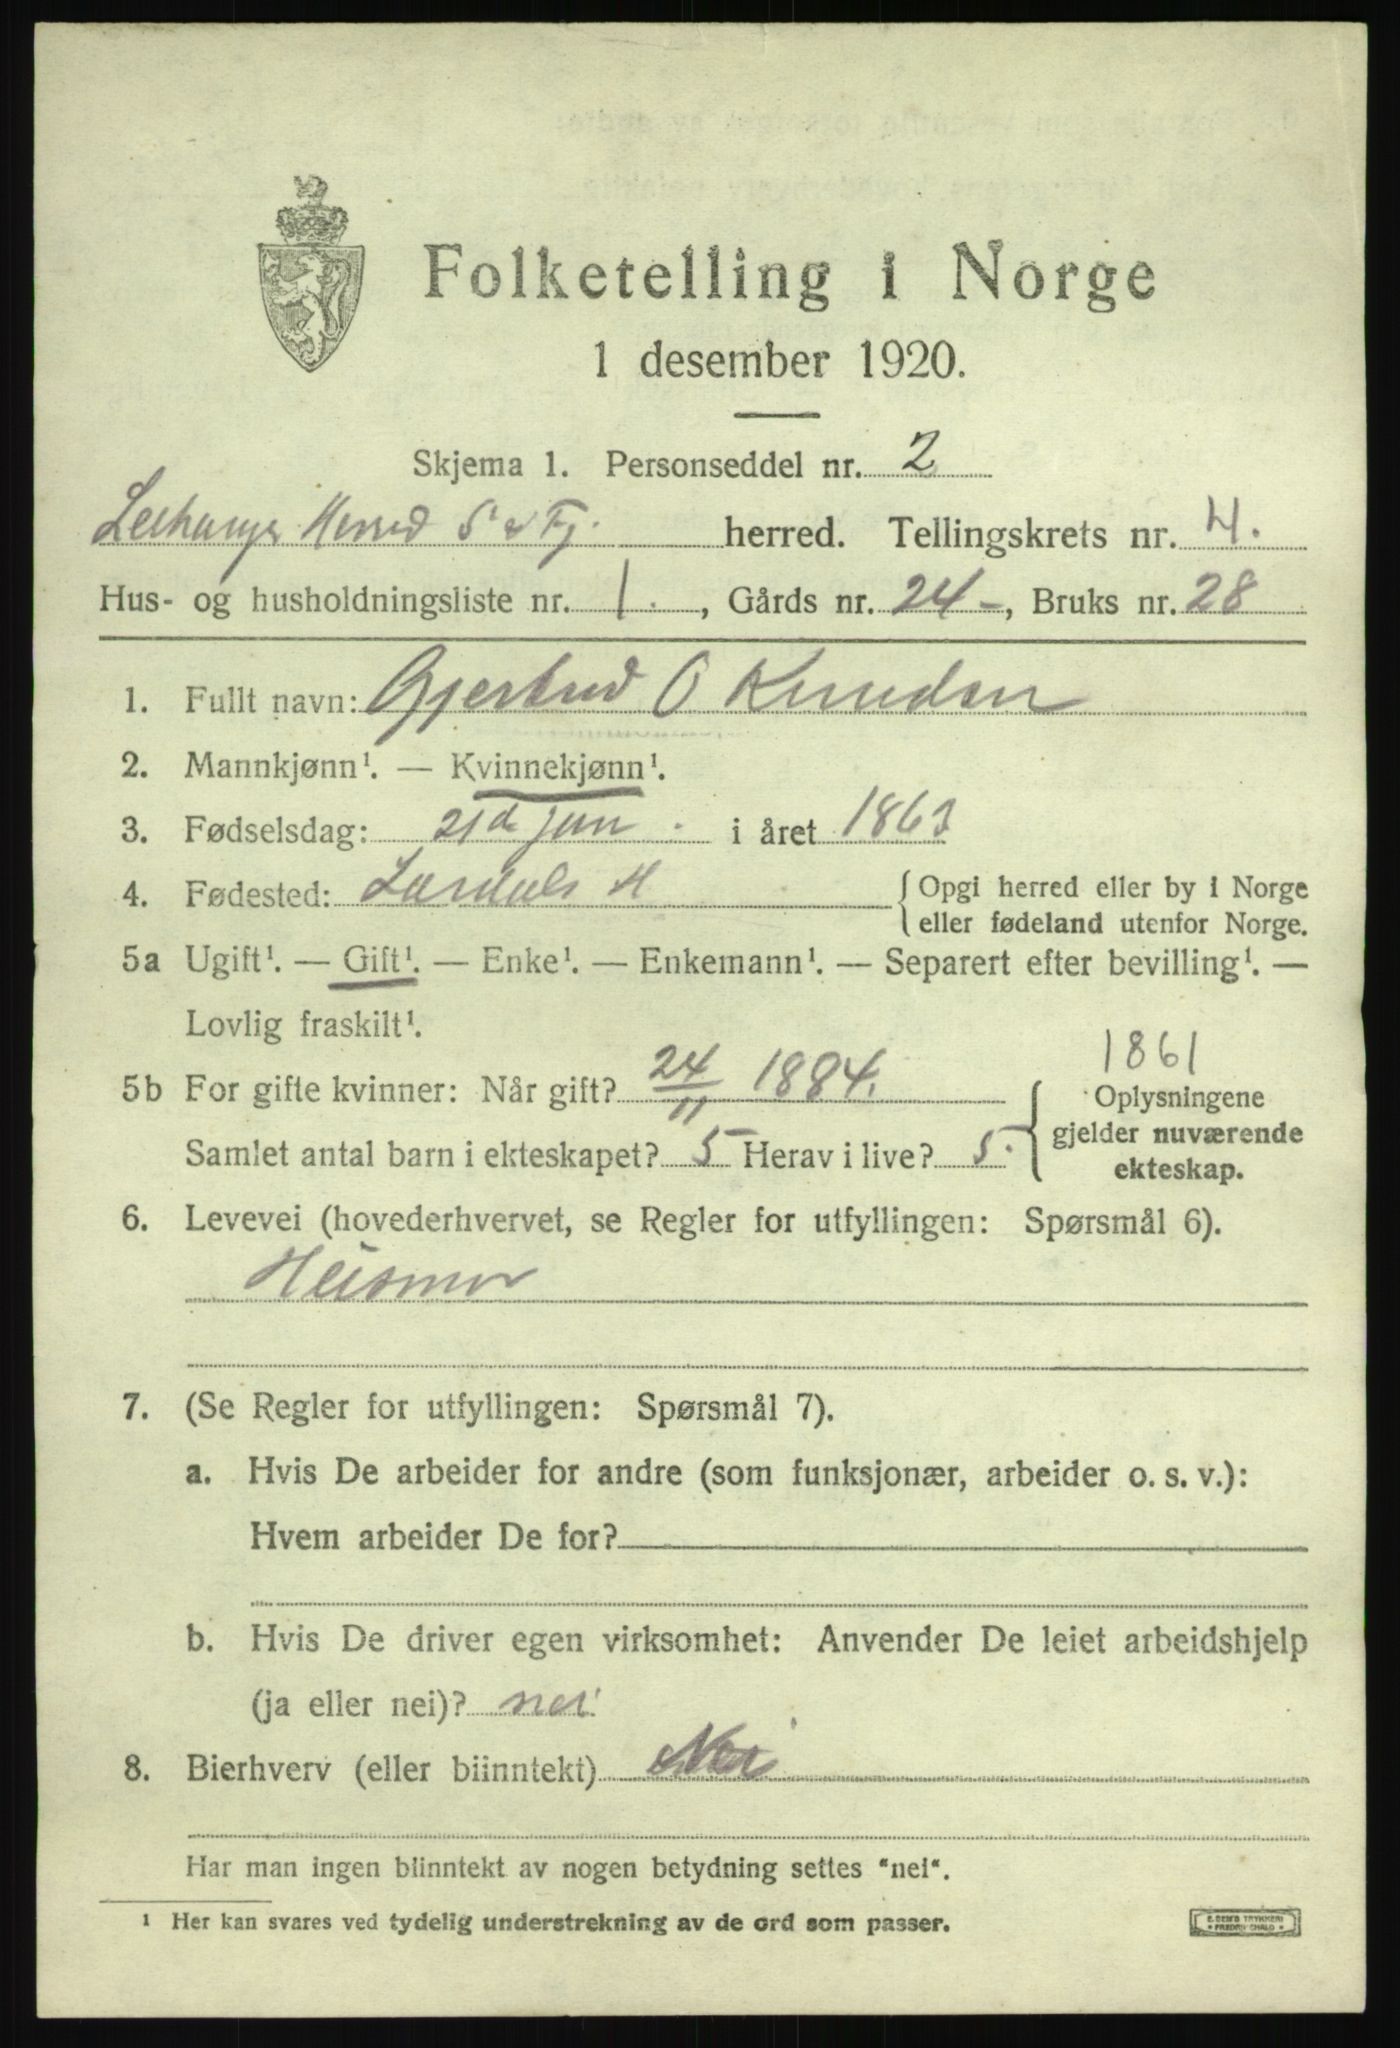 Folketelling i Norge
1 desember 1920.
Skjema 1. Personseddel nr. 2
Herred S & Fj. herred. Tellingskrets nr. 4.
Hus- og husholdningsliste nr. 1. , Gårds nr. 24-, Bruks nr. 28
1. Fullt navn: Gjertrud O Knudsen
2. Mannkjønn¹. — Kvinnekjønn¹.
3. Fødselsdag: 21de jan. i året 1863
4. Fødested: Lærdals H { Opgi herred eller by i Norge
eller fødeland utenfor Norge.
5a Ugift¹. — Gift¹. — Enke¹. — Enkemann¹. — Separert efter bevilling¹. —
Lovlig fraskilt¹.
1861
5b For gifte kvinner: Når gift? 24/11 1884. { Oplysningene
gjelder nuværende
Samlet antal barn i ekteskapet? 5 Herav i live? 5.
ekteskap.
6. Levevei (hovederhvervet, se Regler for utfyllingen: Spørsmål 6).
Heismor
7. (Se Regler for utfyllingen: Spørsmål 7).
a. Hvis De arbeider for andre (som funksjonær, arbeider o. s. v.):
Hvem arbeider De for?
b. Hvis De driver egen virksomhet: Anvender De leiet arbeidshjelp
(ja eller nei)? nei
8. Bierhverv (eller biinntekt) Nei
Har man ingen biinntekt av nogen betydning settes "nei".
¹ Her kan svares ved tydelig understrekning av de ord som passer.